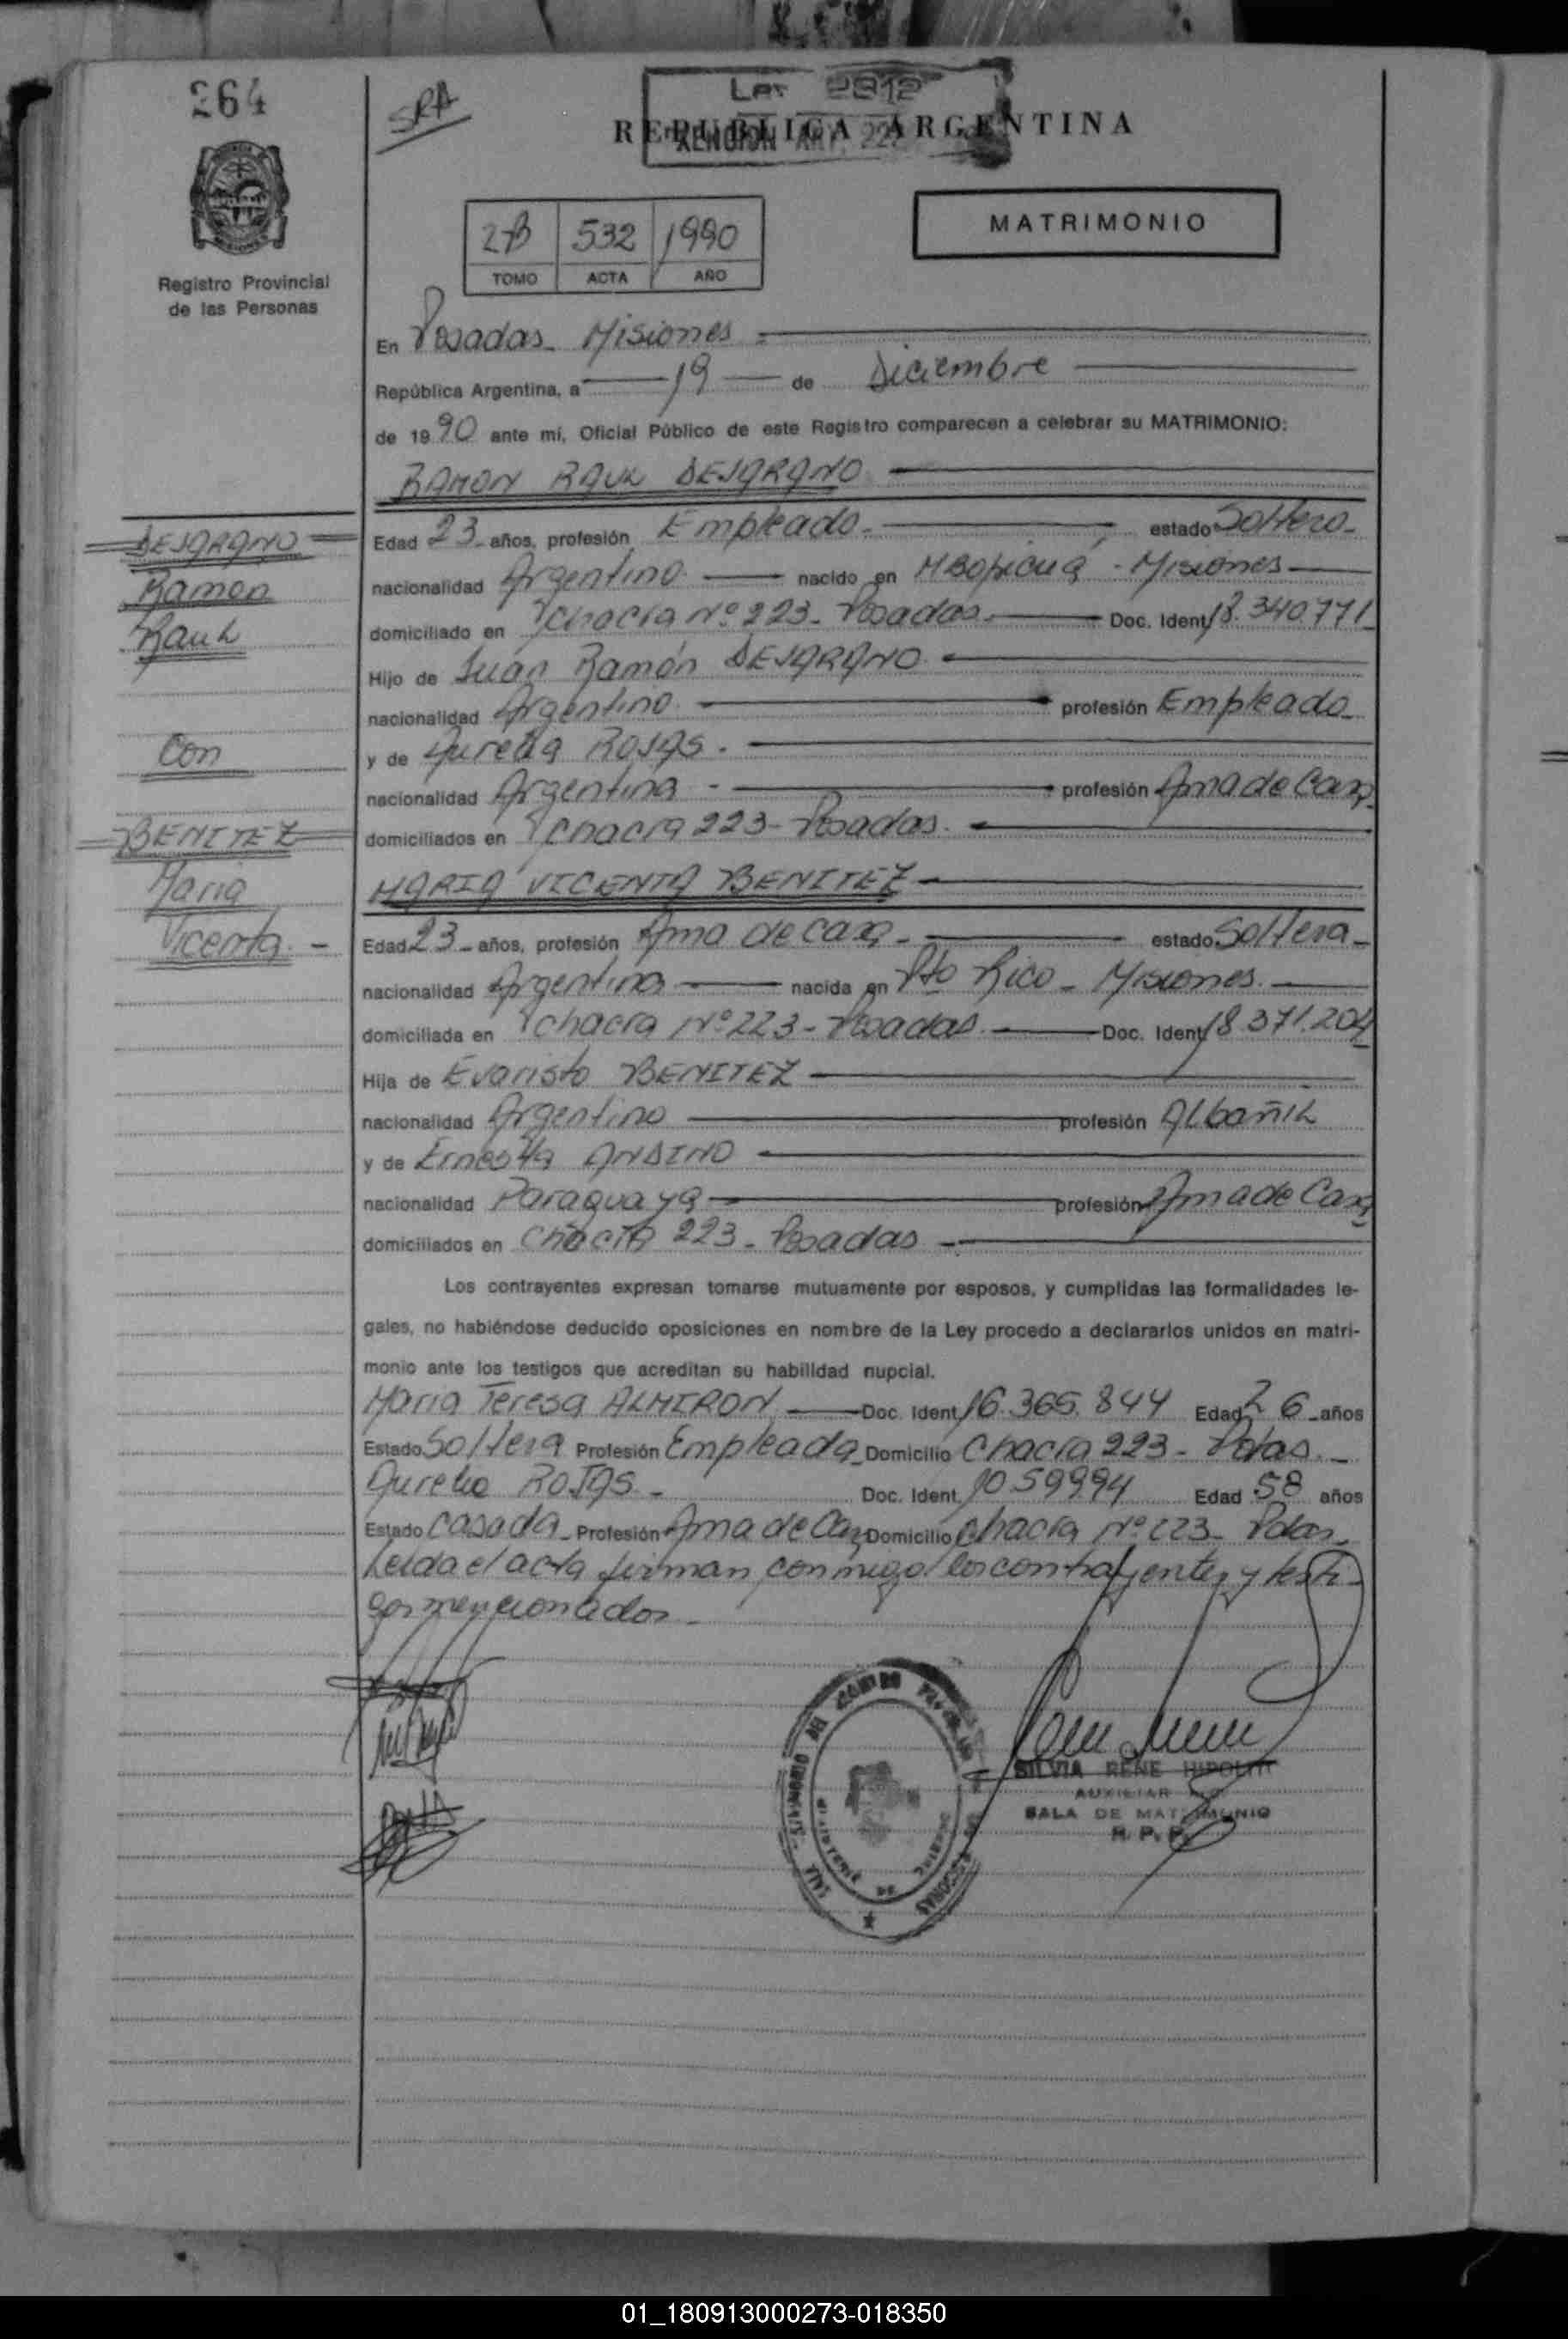 264
SRA
LEY 2812
REPUBLICA ARGENTINA
ART. 22
2B 532 1990
TOMO ACTA AÑO
MATRIMONIO
Registro Provincial
de las Personas
En Posadas Misiones
República Argentina, a 19 de Diciembre
de 1990 ante mí, Oficial Público de este Registro comparecen a celebrar su MATRIMONIO:
RAMON RAUL DEJARANO
DEJARANO
Ramon
Raul
Con
BENITEZ
Maria
Vicenta
Edad 23 años, profesión Empleado estado Soltero
nacionalidad Argentino nacido en Mbopicuá - Misiones
domiciliado en Chacra Nº 223 - Posadas. Doc. Ident. 18.340.771
Hijo de Juan Ramón DEJARANO
nacionalidad Argentino profesión Empleado
y de Aurelia ROJAS.
nacionalidad Argentina profesión Ama de Casa
domiciliados en Chacra 223 - Posadas.
MARIA VICENTA BENITEZ
Edad 23 años, profesión Ama de casa estado Soltera
nacionalidad Argentina nacida en Pto Rico - Misiones.
domiciliada en Chacra Nº 223 - Posadas. Doc. Ident. 18.371.204
Hija de Evaristo BENITEZ
nacionalidad Argentino profesión Albañil
y de Ernesta ANDINO
nacionalidad Paraguaya profesión Ama de Casa
domiciliados en Chacra 223 - Posadas
Los contrayentes expresan tomarse mutuamente por esposos, y cumplidas las formalidades le-
gales, no habiéndose deducido oposiciones en nombre de la Ley procedo a declararlos unidos en matri-
monio ante los testigos que acreditan su habilidad nupcial.
Maria Teresa ALMIRON Doc. Ident. 16.365.844 Edad 26 años
Estado Soltera Profesión Empleada Domicilio Chacra 223 - Pdas.
Aurelia ROJAS. Doc. Ident. 1059994 Edad 58 años
Estado Casada Profesión Ama de Casa Domicilio Chacra Nº 223 - Pdas.
Leida el acta firman conmigo los contrayentes y testi-
gos mencionados
SILVIA RENE HIPOLITI
AUXILIAR
SALA DE MATRIMONIO
R. P. P.
MINISTERIO DE GOBIERNO
01_180913000273-018350